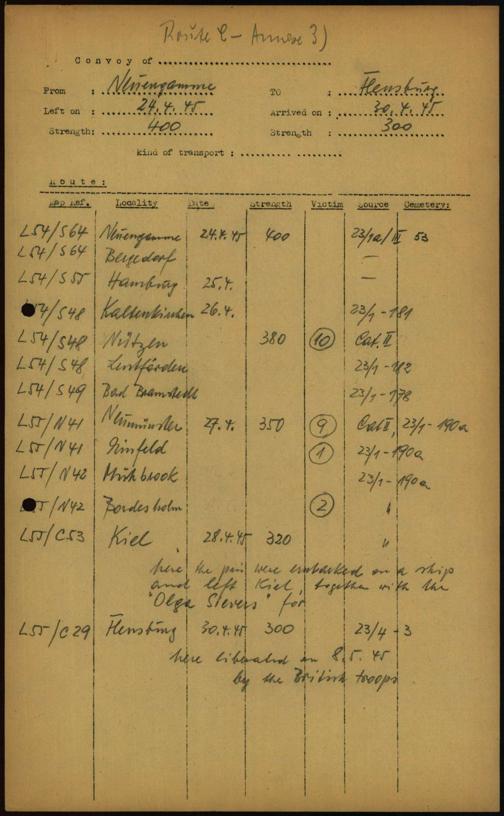 Route C - Annexe 3)
Convoy of
From : Neuengamme TO : Flensburg
Left on : 24.4.45 Arrived on : 30.4.45
Strength: 400 Strength : 300
kind of transport :
Route:
Map Ref. Locality Date Strength Victim Source Cemetery:
L54/S64 Neuengamme 24.4.45 400 23/1a/III 53
L54/S64 Bergedorf —
L54/S55 Hamburg 25.4. —
4/S48 Kaltenkirchen 26.4. 23/1-181
L54/S48 Nützen 380 10 Cat.II
L54/S48 Lentförden 23/1-182
L54/S49 Bad Bramstedt 23/1-178
L55/N41 Neumünster 27.4. 350 9 Cat II, 23/1-190a
L55/N41 Einfeld 1 23/1-190a
L55/N42 Mühbrook 23/1-190a
L55/N42 Bordesholm 2 "
L55/C53 Kiel 28.4.45 320 "
here the pris were embarked on a ship
and left Kiel, together with the
"Olga Sievers" for
L55/C29 Flensburg 30.4.45 300 23/4-3
here liberated on 8.5.45
by the British troops